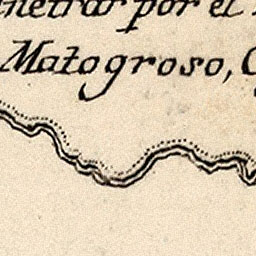 netrar por el
Matogroso,